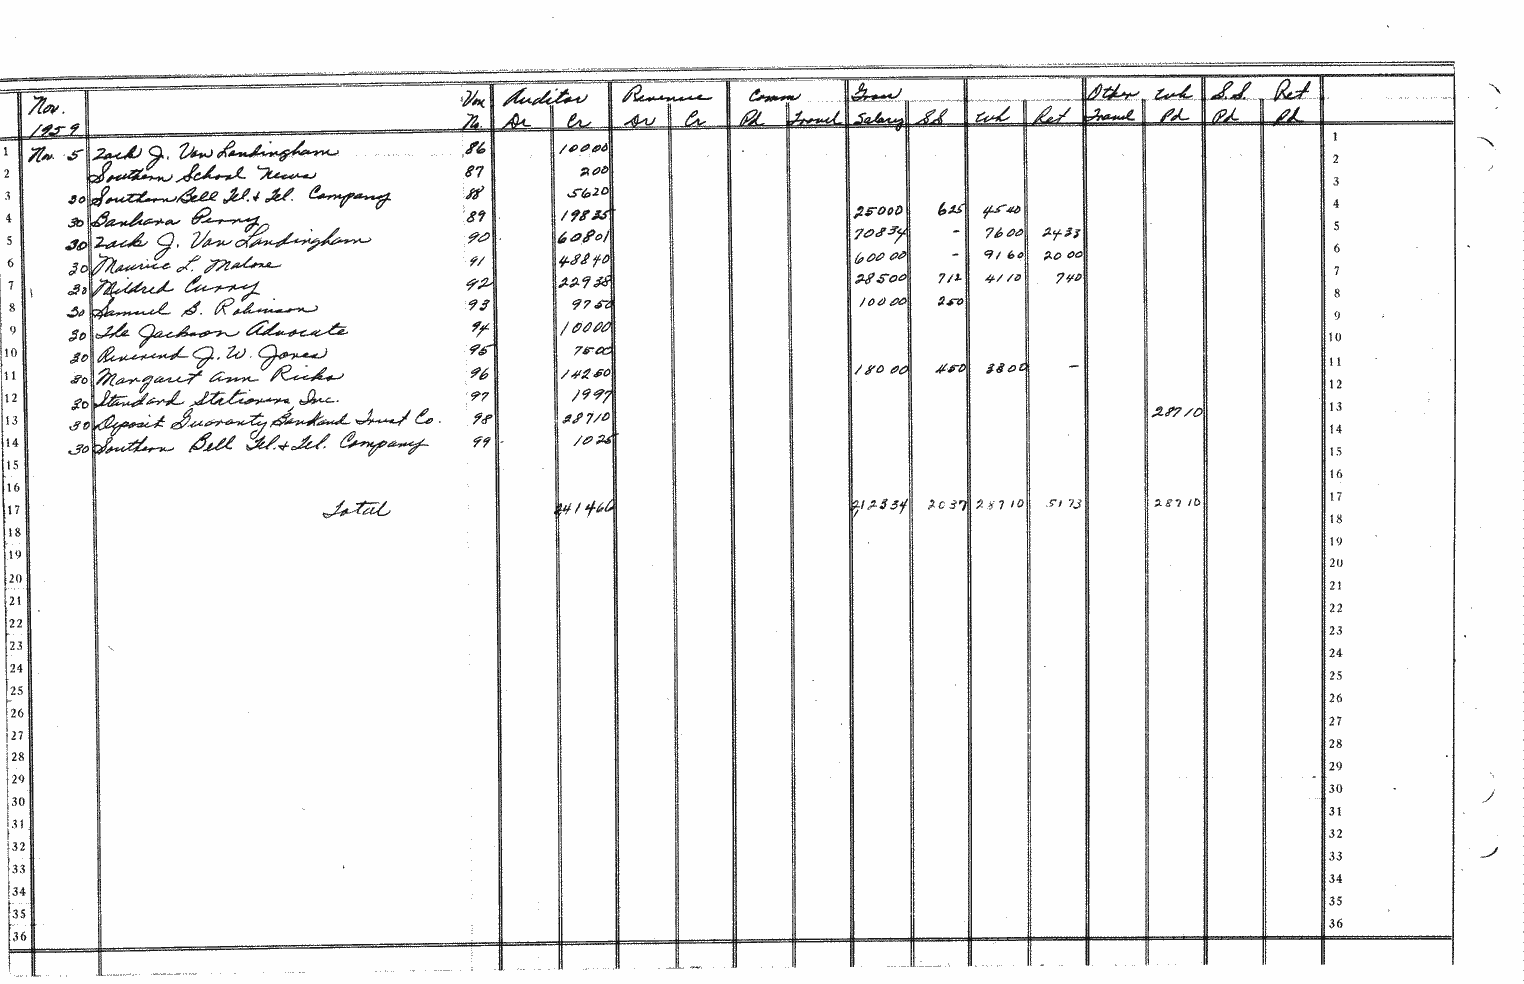 Nov. Vou Auditor Revenue Comm Gross Other Wh S.S. Ret
1959 No. Dr Cr Dr Cr Pd Travel Salary S.S. Wh Ret Travel Pd Pd Pd
1 Nov. 5 Zack J. Van Landingham 86 10000 1
2 Southern School News 87 200 2
3 30 Southern Bell Tel. & Tel. Company 88 5620 3
4 30 Barbara Penny 89 19835 25000 625 4540 4
5 30 Zack J. Van Landingham 90 60801 70834 - 7600 2433 5
6 30 Maurice L. Malone 91 48840 60000 - 9160 2000 6
7 30 Mildred Curry 92 22938 28500 712 4110 740 7
8 30 Samuel B. Robinson 93 9750 10000 250 8
9 30 The Jackson Advocate 94 10000 9
10 30 Reverend J. W. Jones 95 7500 10
11 30 Margaret Ann Ricks 96 14250 18000 450 3300 - 11
12 30 Standard Stationers Inc. 97 1997 12
13 30 Deposit Guaranty Bank and Trust Co. 98 28710 28710 13
14 30 Southern Bell Tel. & Tel. Company 99 1025 14
15 15
16 16
17 Total 241466 212334 2037 28710 5173 28710 17
18 18
19 19
20 20
21 21
22 22
23 23
24 24
25 25
26 26
27 27
28 28
29 29
30 30
31 31
32 32
33 33
34 34
35 35
36 36